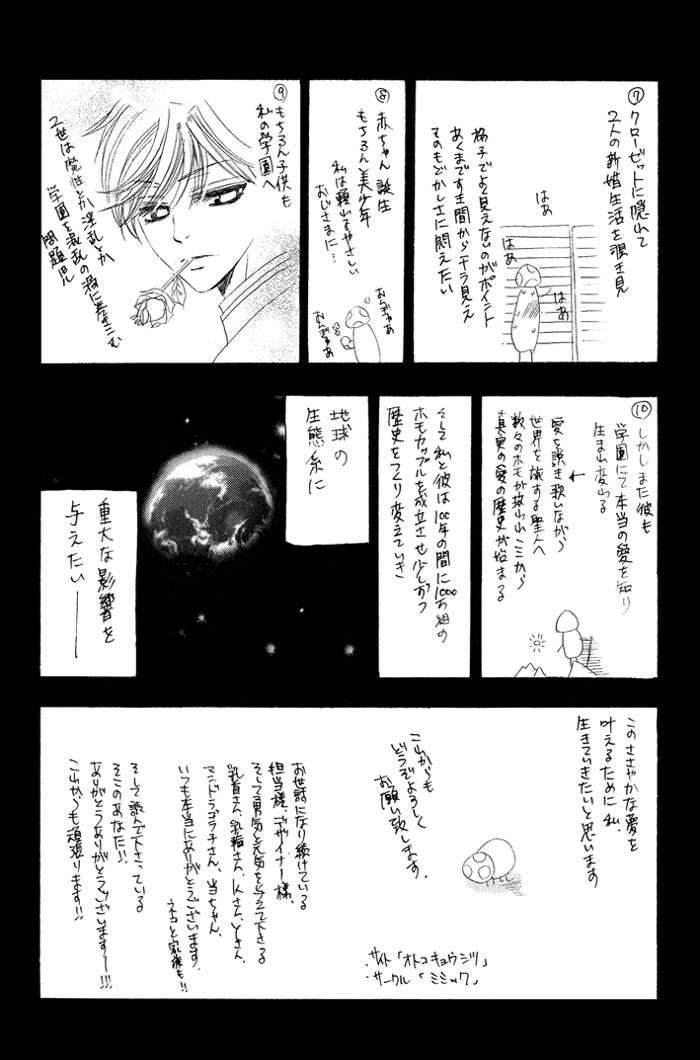 ⑦
クローゼットに隠れて
2人の新婚生活を覗き見
格子でよく見えないのがポイント
あくまですき間からチラ見え
そのもどかしさに悶えたい
はぁ
はぁ
はぁ
⑧
赤ちゃん誕生
もちろん美少年
私は頼れるやさしい
おじさまに…
おぎゃあ
おぎゃあ
⑨
もちろん子供も
私の学園へ
2世は魔性とか淫乱とか
学園を混乱の渦に巻き込む
問題児
⑩
しかしまた彼も
学園にて本当の愛を知り
生まれ変わる
↓
愛を説き歌いながら
世界を旅する聖人へ
数々のホモが救われここから
真実の愛の歴史が始まる
そして私と彼は100年の間に1000万組の
ホモカップルを成立させ少しずつ
歴史をつくり変えていき
地球の
生態系に
重大な影響を
与えたい――
このささやかな夢を
叶えるために私、
生きていきたいと思います
これからも
どうぞよろしく
お願い致します。
お世話になり続けている
担当様、デザイナー様、
そして勇気と元気を与えて下さる
乳首さん、乳輪さん、Kさん、Yさん、
マンドラゴラ子さん、当ちゃん、
いつも本当にありがとうございます。
ネコと家族も!!
そして読んで下さっている
そこのあなた!!
ありがとうありがとうございますー!!!
これからも頑張ります!!
・サイト「オトコキョウシツ」
・サークル「ミミック」